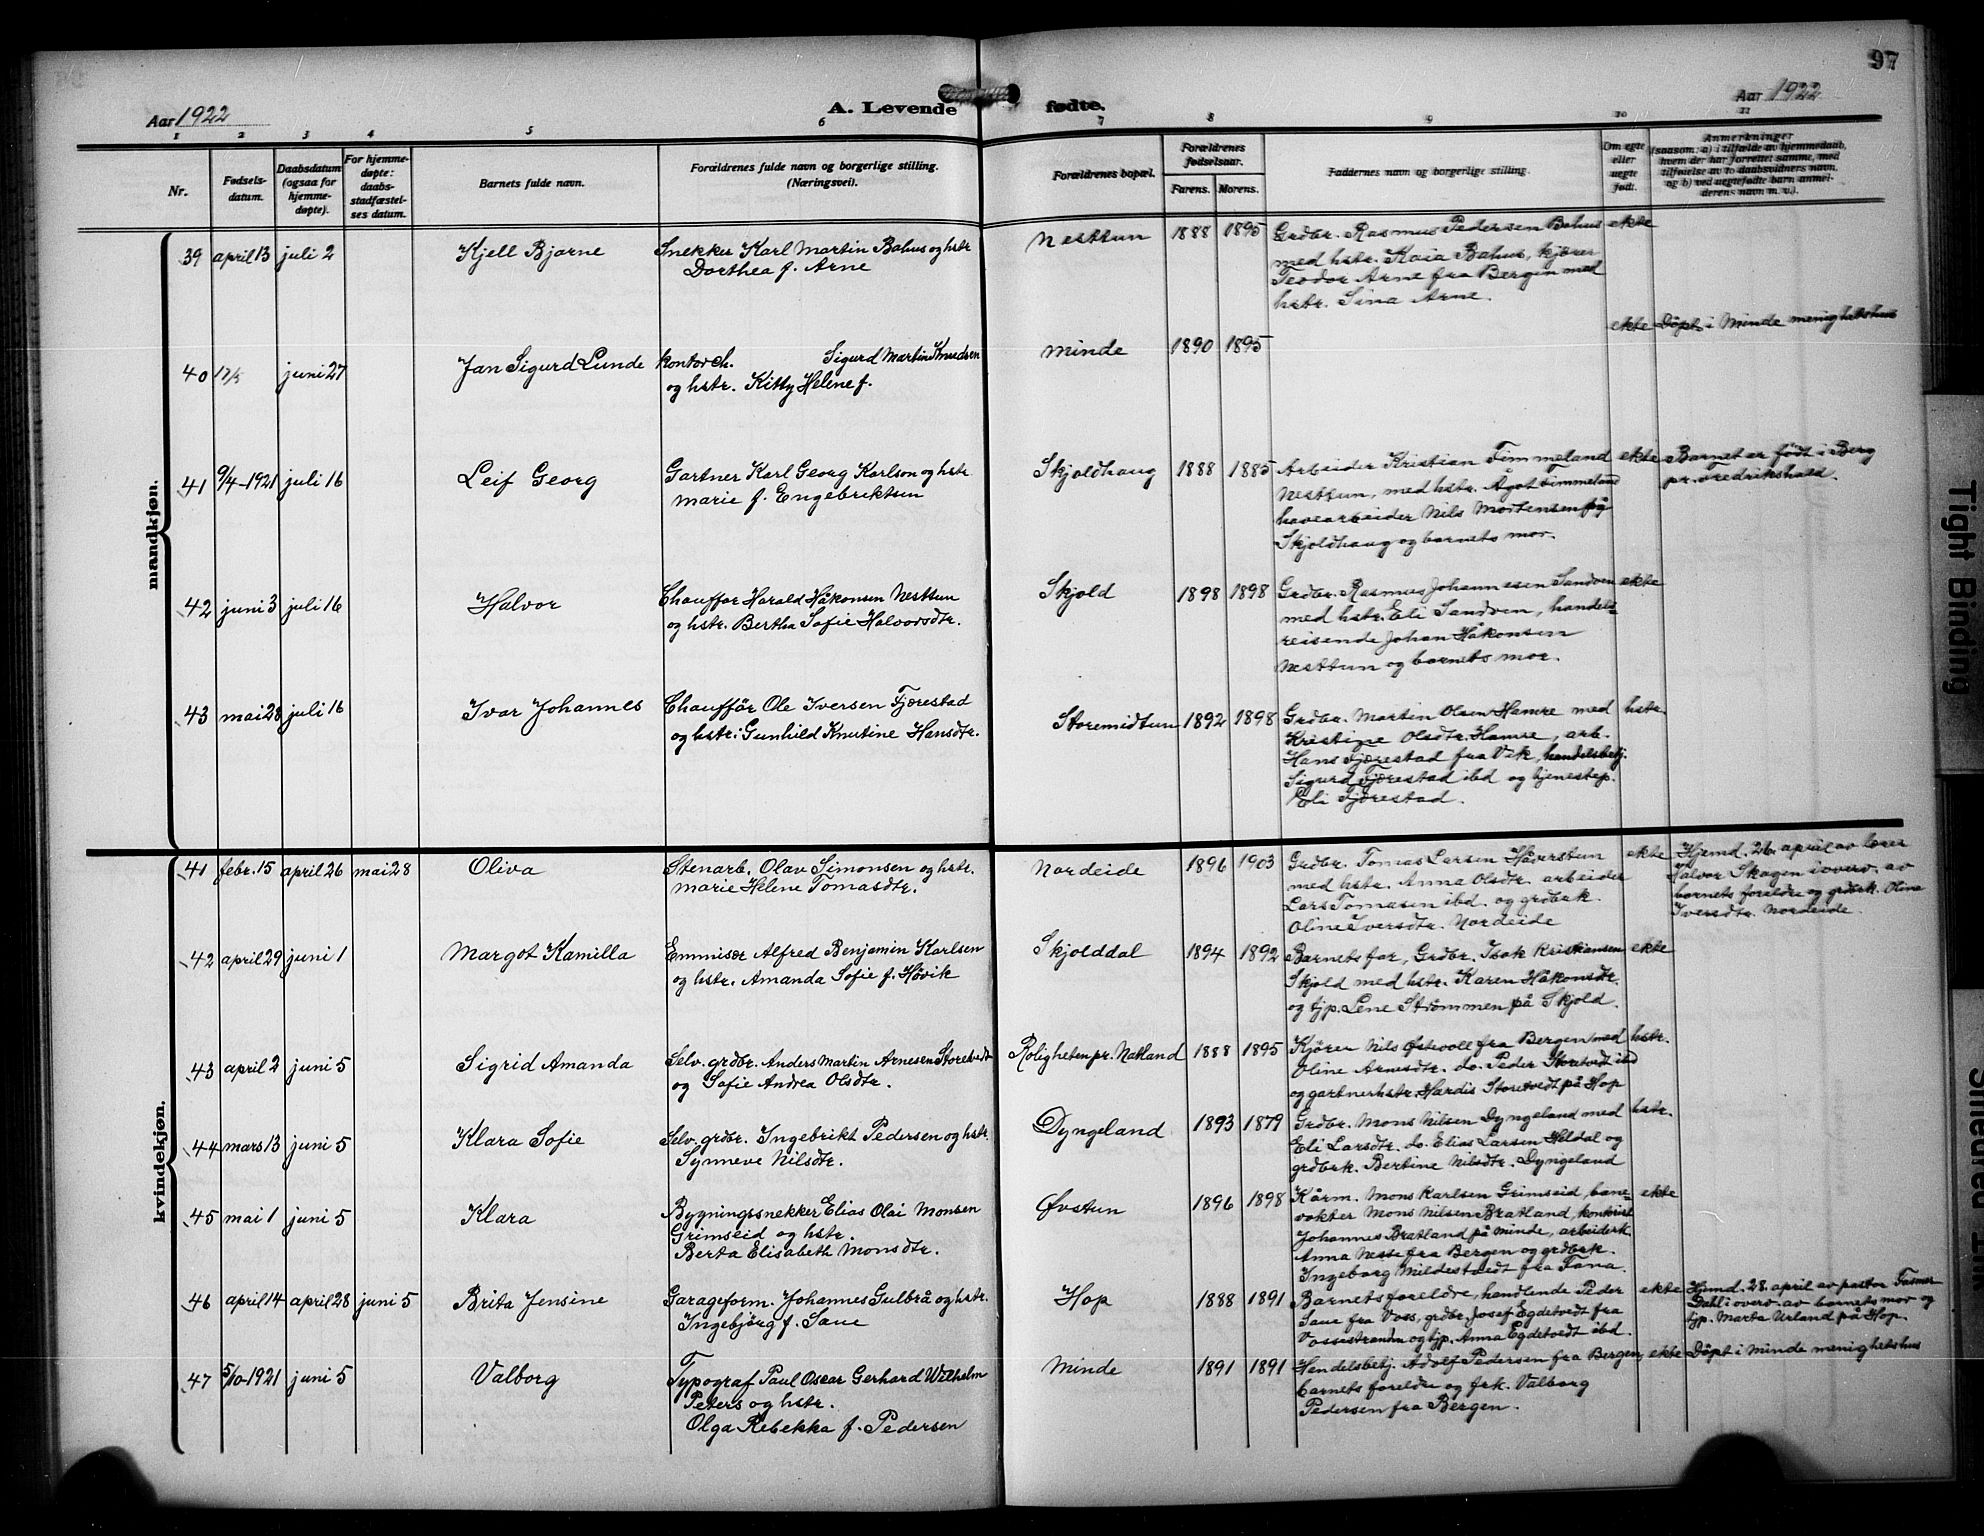 97
Aar 1922
A. Levende fødte.
Aar 1922
1 2 3 4 5 6 7 8 9 10 11
Nr.
Fødsels-
datum.
Daabsdatum
(ogsaa for
hjemme-
døpte).
For hjemme-
døpte:
daabs-
stadfæstel-
ses datum.
Barnets fulde navn.
Forældrenes fulde navn og borgerlige stilling.
(Næringsvei).
Forældrenes bopæl.
Forældrenes
fødselsaar.
Farens. Morens.
Faddernes navn og borgerlige stilling.
Om egte
eller
uegte
født.
Anmerkninger
(saasom: a) i tilfælde av hjemmedaab,
hvem der har forrettet samme, med
tilføielse av to daabsvidners navn,
og b) ved uegtefødte barn anmel-
derens navn m. v.).
mandkjøn.
39 april 13 juli 2 Kjell Bjarne
Snekker Karl Martin Bahus og hstr
Dorthea f. Arne
Nesttun 1888 1895
Grdbr. Rasmus Pedersen Bahus
med hstr. Kaia Bahus, kjører
Teodor Arne fra Bergen med
hstr. Sina Arne.
ekte
40 17/5 juni 27 Jan Sigurd Lunde
kontorch. Sigurd Martin Knudsen
og hstr. Kitty Helene f.
Minde 1890 1895
ekte Döpt i Minde menighetshus
41 9/4-1921 juli 16 Leif Georg
Gartner Karl Georg Karlson og hstr
Marie f. Engebriktsen
Skjoldhaug 1888 1885
Arbeider Kristian Timmeland
Nesttun, med hstr. Ågot Timmeland
havearbeider Nils Mortensen på
Skjoldhaug og barnets mor.
ekte Barnet er født i Berg
pr. Fredrikshald.
42 juni 3 juli 16 Halvor
Chauffør Harald Håkonsen Nesttun
og hstr. Bertha Sofie Halvorsdtr.
Skjold 1898 1898
Grdbr. Rasmus Johannesen Sandven
med hstr. Eli Sandven, handels-
reisende Johan Håkonsen
Nesttun og barnets mor.
ekte
43 mai 28 juli 16 Ivar Johannes
Chauffør Ole Iversen Fjærestad
og hstr. Gunhild Knutine Hansdtr.
Storemidtun 1892 1898
Grdbr. Martin Olsen Hamre med hstr.
Kristine Olsdtr. Hamre, arb.
Hans Fjærestad fra Vik, handelsbetj.
Sigurd Fjærestad ibd og tjenestep.
Eli Fjærestad.
kvindekjøn.
41 febr. 15 april 26 mai 28 Oliva
Stenarb. Olav Simonsen og hstr.
Marie Helene Tomasdtr.
Nordeide 1896 1903
Grdbr. Tomas Larsen Håverstun
med hstr. Anna Olsdtr. arbeider
Lars Tomasen ibd. og grdbrk.
Oline Iversdtr. Nordeide
ekte Hjemd. 26. april av lærer
Halvor Skagen i overv. av
barnets foreldre og grdbrk. Olina
Iversdtr. Nordeide.
42 april 29 juni 1 Margot Kamilla
Emmisær Alfred Benjamin Karlsen
og hstr. Amanda Sofie f. Høvik
Skjolddal 1894 1892
Barnets far, Grdbr. Isak Kristiansen
Skjold med hstr. Karen Håkonsdtr.
og tjp. Lene Strømmen på Skjold.
ekte
43 april 2 juni 5 Sigrid Amanda
Selv. grdbr. Anders Martin Arnesen Storetvedt
og Sofie Andrea Olsdtr.
Roligheten pr. Natland 1888 1895
Kjører Nils Østevoll fra Bergen med hstr.
Oline Arnesdtr. do. Peder Storetvedt ibd
og gartnerhstr. Hardis Storetvedt på Hop
44 mars 13 juni 5 Klara Sofie
Selv. grdbr. Ingebrikt Pedersen og hstr.
Synneve Nilsdtr.
Dyngeland 1893 1879
Grdbr. Mons Nilsen Dyngeland med hstr.
Eli Larsdtr. do. Elias Larsen Heldal og
grdbrk. Bertine Nilsdtr. Dyngeland
45 mai 1 juni 5 Klara
Bygningssnekker Elias Olai Monsen
Grimseid og hstr.
Berta Elisabeth Monsdtr.
Øvstun 1896 1898
Kårm. Mons Karlsen Grimseid, bane-
vokter Mons Nilsen Bratland, kontorist
Johannes Bratland på Minde, arbeiderk.
Anna Nesse fra Bergen og grdbrk.
Ingeborg Mildestvedt fra Fana.
ekte
46 april 14 april 28 juni 5 Brita Jensine
Garageform. Johannes Gulbrå og hstr.
Ingebjørg f. Saue
Hop 1888 1891
Barnets foreldre, handlende Peder
Saue fra Voss, grdbr. Josef Egdetvedt fra
Vossestranden og tjp. Anna Egdetvedt ibd.
ekte Hjemd. 28. april av pastor Fasmer
Dahl i overv. av barnets mor og
tjp. Marta Urland på Hop.
47 5/10-1921 juni 5 Valborg
Typograf Paul Oscar Gerhard Wilhelm
Peters og hstr.
Olga Rebekka f. Pedersen
Minde 1891 1891
Handelsbetj. Adolf Pedersen fra Bergen,
barnets foreldre og frk. Valborg
Pedersen fra Bergen.
ekte Döpt i Minde menighetshus
Tight Binding